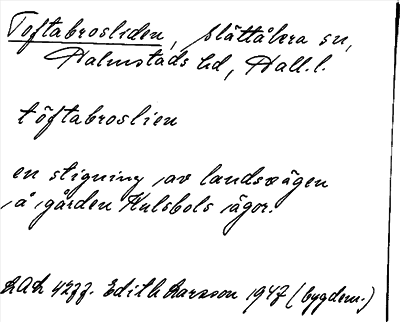 Toftabrosliden, Slättåkra sn,
Halmstads hd, Hall. l.
töftabroslien
en stigning av landsvägen
å gården Hulsbols ägor.
LAL 4277. Edith Larsson 1947 (bygdem.)